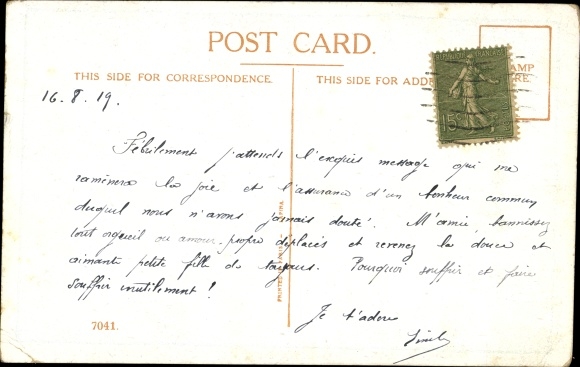 POST CARD.
THIS SIDE FOR CORRESPONDENCE.
THIS SIDE FOR ADDRE
STAMP
HERE
15c
16.8.19.
Fébrilement j'attends l'exquis message qui me
ramènera la joie et l'assurance d'un bonheur commun
duquel nous n'avons jamais douté. M'amie, bannissez
tout orgueil ou amour-propre déplacés et revenez la douce et
aimante petite fille de toujours. Pourquoi souffrir et faire
souffrir inutilement !
Je t'adore
PRINTED
7041.